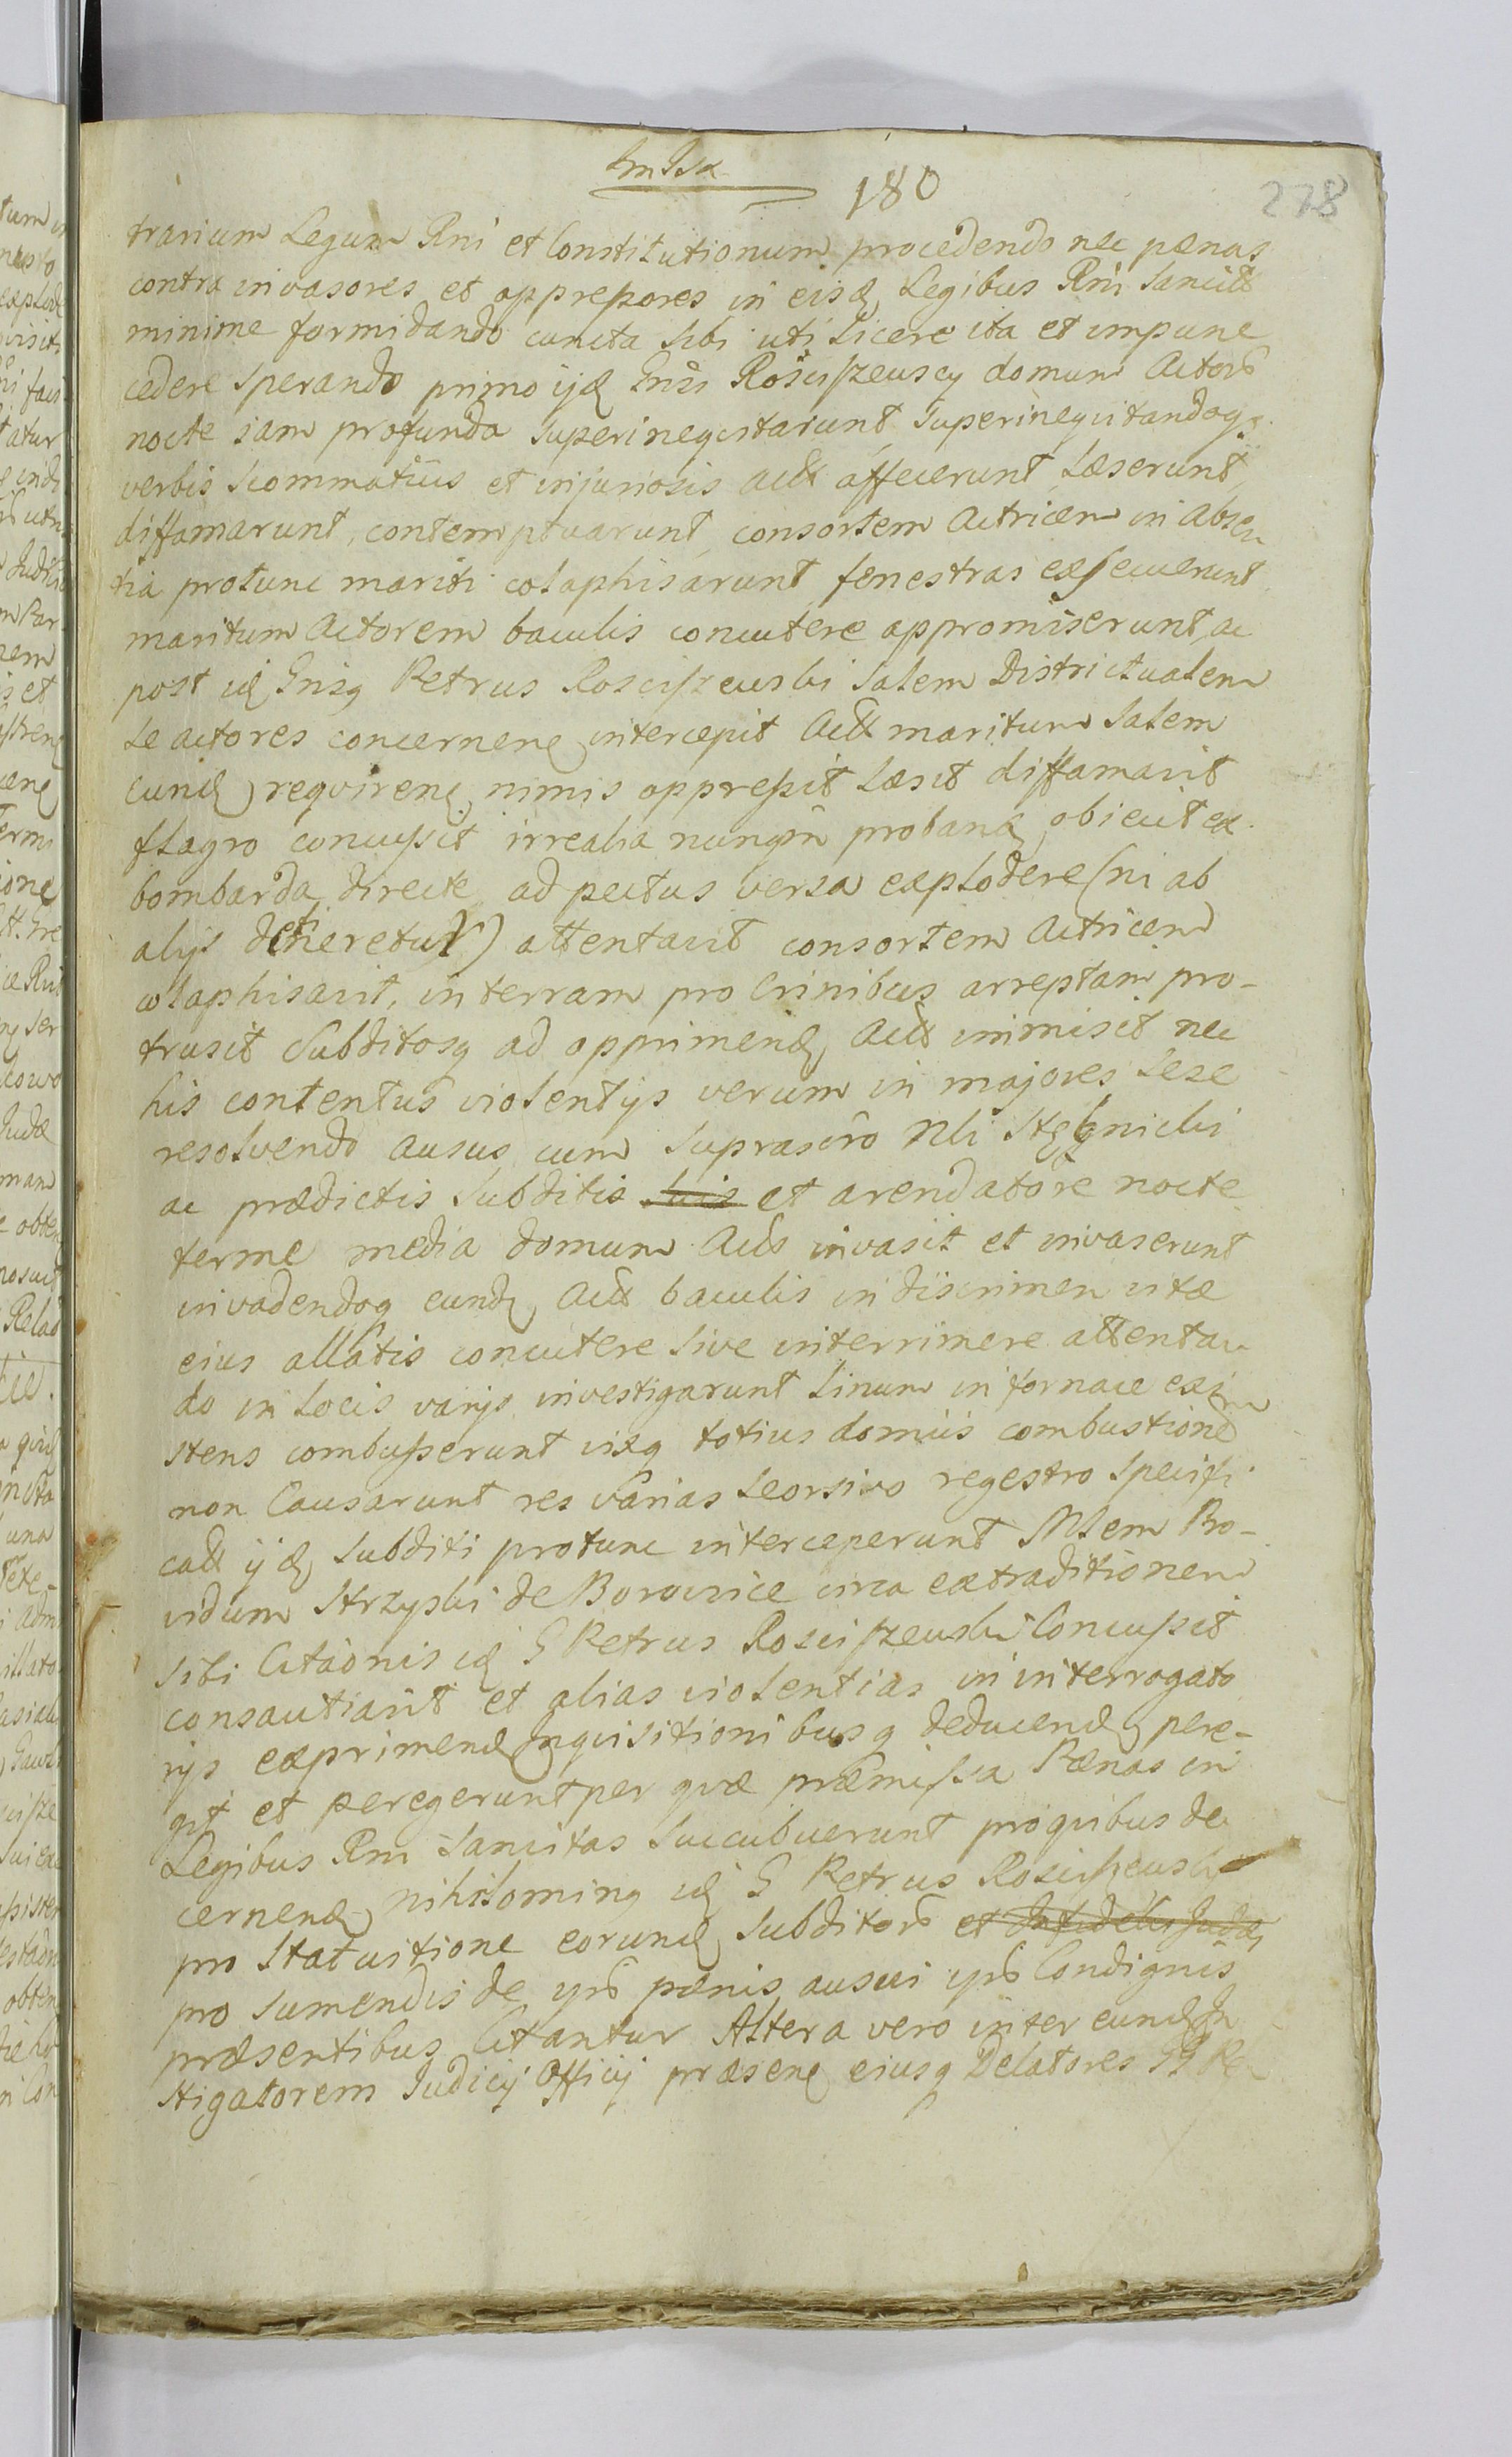 180
278
trarium Legum Rni et Constitutionum procedendo nec pœnas
contra invasores et oppreßores in eisd Legibus Rni Sancit
minime formidando cuncta sibi uti licere ita et impune
cedere sperando primo ijd Gnsi Rosciszewscy domum Actor
nocte iam profunda superinequitarunt, superinequitandoq
verbis scommaticis et injuriosis Act affecerunt læserunt
diffamarunt, contemptuarunt consortem Actricem in absen
tia protunc mariti colaphisarunt fenestras exsecuerunt
maritum Actorem baculis concutere appromiserunt, ac
post id Gnsq Petrus Rosciszewski Salem Districtualem
se actores concernen intercepit Act maritum Salem
eund requiren nimis oppreßit læsit diffamavit
flagro concußit irrealia nunqm proband obiecit ex
bombarda directe ad pectus versa explodere (ni ab
alijs detineretur) attentavit consortem Actricem
colaphisavit, in terram pro Crinibus arreptam pro-
trusit Subditosq ad opprimend Act immisit nec
his contentus violentijs verum in majores sese
resolvendo ausus cum suprascro Nli Stębnicki
ac prædictis Subditis suis et arendatore nocte
ferme media domum Act invasit et invaserunt
invadendoq eund Act baculis in discrimen vitæ
eius allatis concutere sive interrimere attentan
do in locis varijs investigarunt Linum in fornace exi
stens combußerunt vixq totius domus combustione
non Causarunt res varias seorsivo regestro specifi
cat ijd subditi protunc interceperunt Mlem Pro-
vidum Strzyski de Borowice circa extraditionem
sibi Citaonis id G Petrus Rosciszewski Concußit
consauciavit et alias violentias in interrogato
rijs exprimend Inquisitionibusq deducend pere-
git et peregerunt per quæ præmissa Pœnas in
Legibus Rni Sancitas succubuerunt pro quibus de
cernend nihilominq id G Petrus Rosciszewski
pro Statuitione eorund Subditor et
pro sumendis de ijs pœnis ausui ipso Condignis
præsentibus Citantur Altera vero inter eund In
stigatorem Judicij Officij præsen eiusq Delatores GG Pe